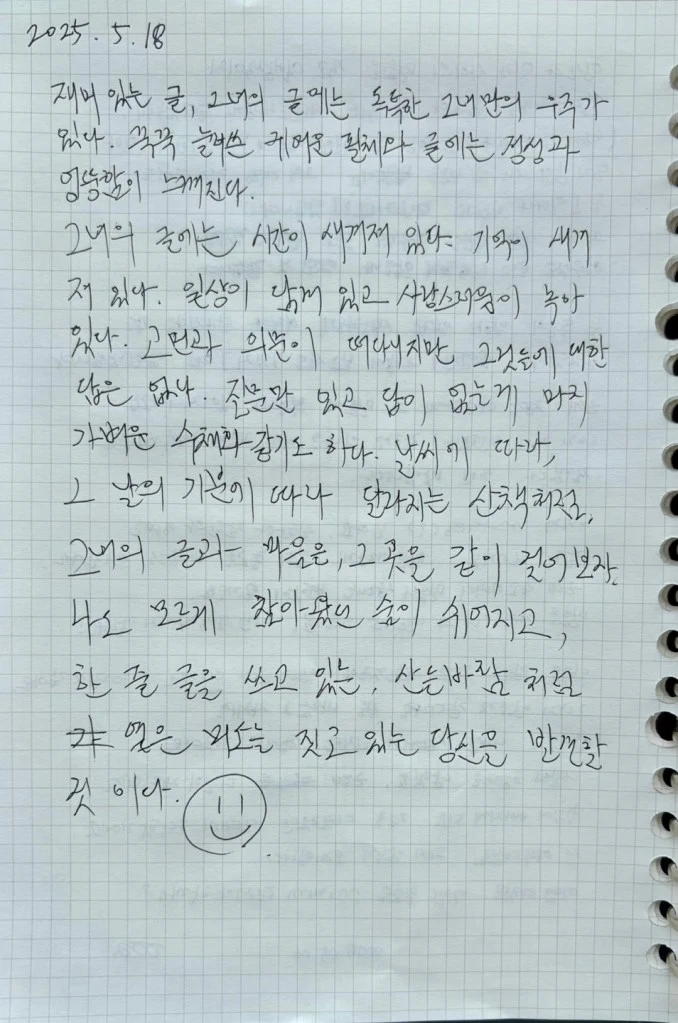 2025. 5. 18
재미 있는 글, 그녀의 글에는 독특한 그녀만의 우주가
있다. 꾹꾹 눌러쓴 귀여운 필체와 글에는 정성과
엉뚱함이 느껴진다.
그녀의 글에는 시간이 새겨져 있다. 기억이 새겨
져 있다. 일상이 담겨 있고 사랑스러움이 녹아
있다. 고민과 의문이 떠다니지만 그것들에 대한
답은 없다. 질문만 있고 답이 없는게 마치
가벼운 수채화 같기도 하다. 날씨에 따라,
그 날의 기분에 따라 달라지는 산책처럼,
그녀의 글과 마음을, 그 곳을 같이 걸어보자.
나도 모르게 참아왔던 숨이 쉬어지고,
한 줄 글을 쓰고 있는, 산들바람 처럼
옅은 미소는 짓고 있는 당신을 발견할
것 이다.